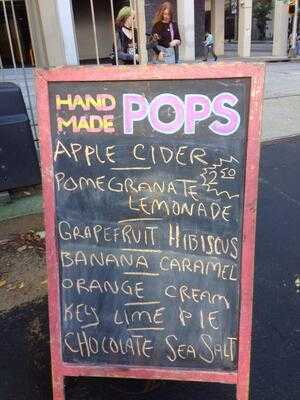 HAND MADE POPS
APPLE CIDER
2 50
POMEGRANATE
LEMONADE
GRAPEFRUIT HIBISCUS
BANANA CARAMEL
ORANGE CREAM
KEY LIME PIE
CHOCOLATE SEA SALT